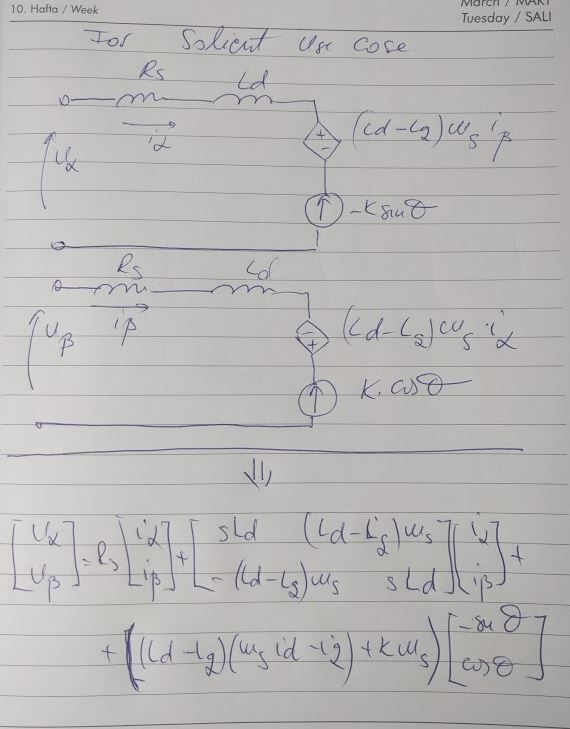 10. Hafta / Week
March / MART
Tuesday / SALI
For Salient Use case
Rs Ld
iα
Uα
(Ld-Lq)ωs iβ
-K sinθ
Rs Ld
iβ
Uβ
(Ld-Lq)ωs iα
K.cosθ
⇓
[Uα Uβ] = Rs [iα iβ] + [sLd (Ld-Lq)ωs -(Ld-Lq)ωs sLd] [iα iβ] +
+ ((Ld-Lq)(ωs id - iq) + Kωs) [-sinθ cosθ]